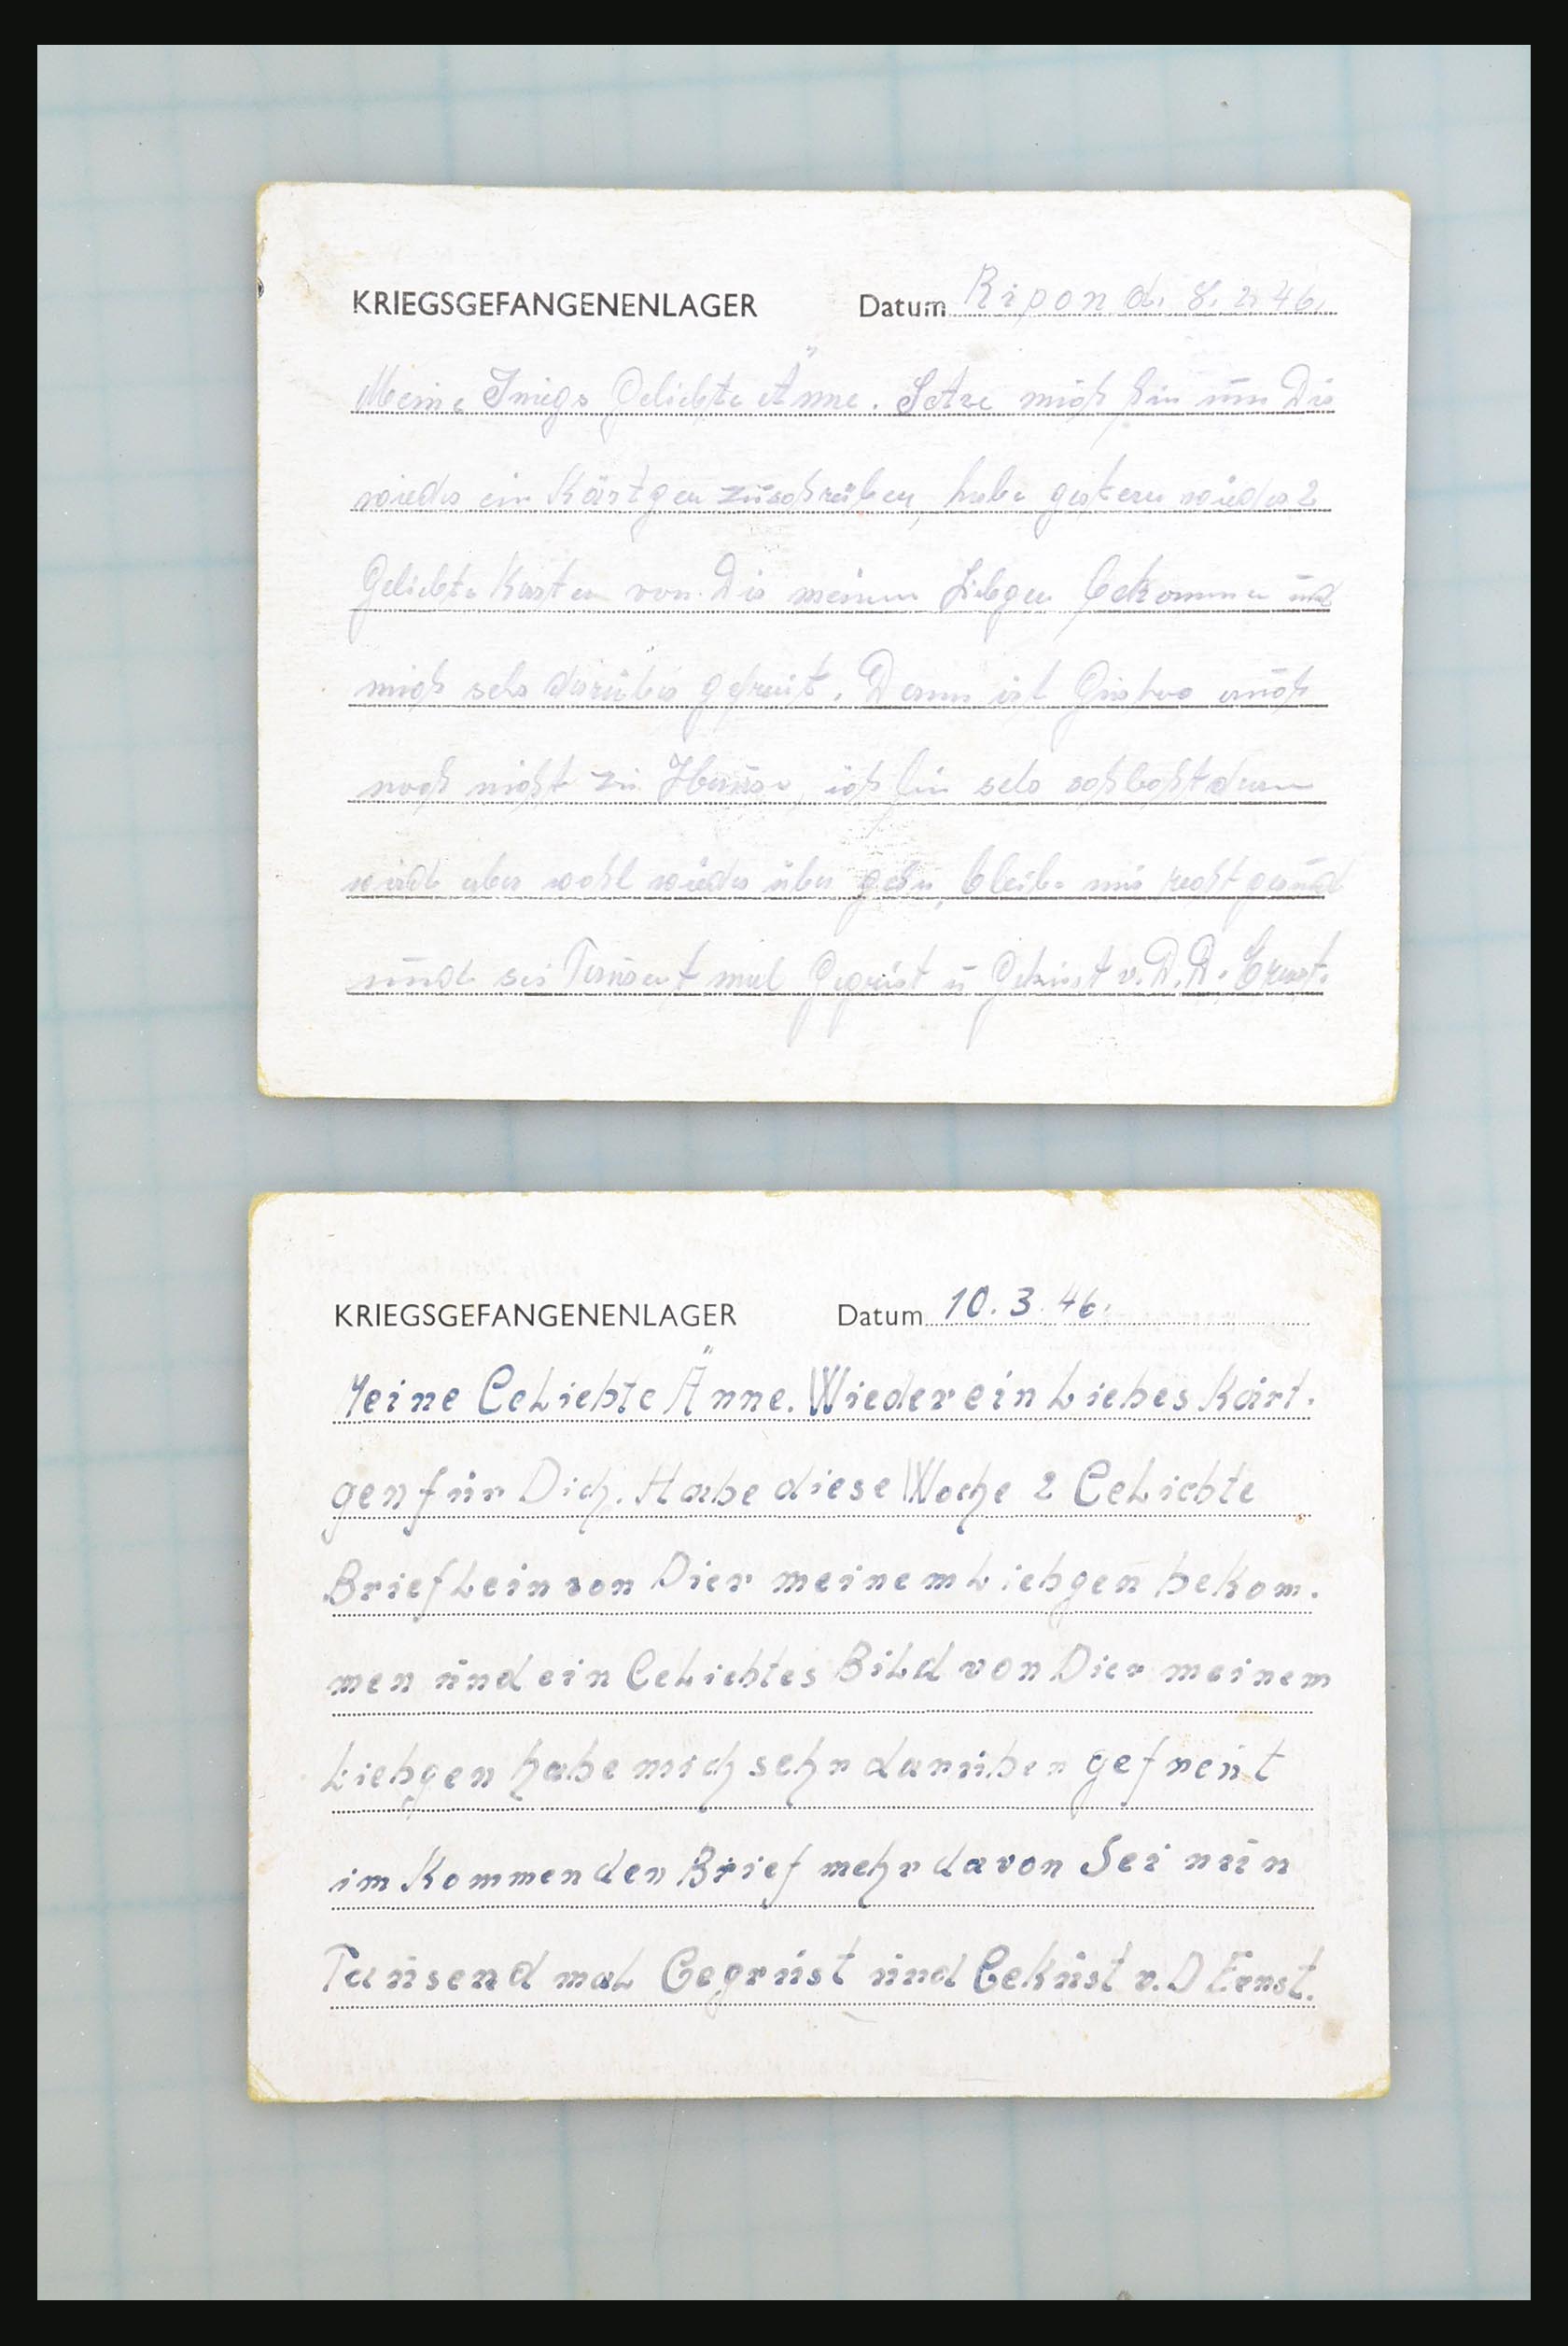 KRIEGSGEFANGENENLAGER Datum Ripon d. 8. 2. 46.
Meine Geliebte Änne. Setze mich hin um Dir
wieder ein Kärtgen zuschreiben, habe gestern wieder 2
Geliebte Karten von Dir meinem Liebgen bekommen und
mich sehr darüber gefreut. Dann ist Gustav auch
noch nicht zu Hause, ich bin sehr schlecht dran
wird aber wohl wieder über gehn, bleibe mir recht gesund
und sei Tausent mal Gegrüst u Geküst v. D. D. Ernst.
KRIEGSGEFANGENENLAGER Datum 10. 3. 46.
Meine Geliebte Änne. Wieder ein Liebes Kärt.
gen für Dich. Habe diese Woche 2 Geliebte
Brieflein von Dier meinem Liebgen bekom.
men und ein Geliebtes Bild von Dier meinem
Liebgen habe mich sehr darüber gefreut
im Kommenden Brief mehr davon Sei nun
Tausend mal Gegrüst und Geküst v. D Ernst.